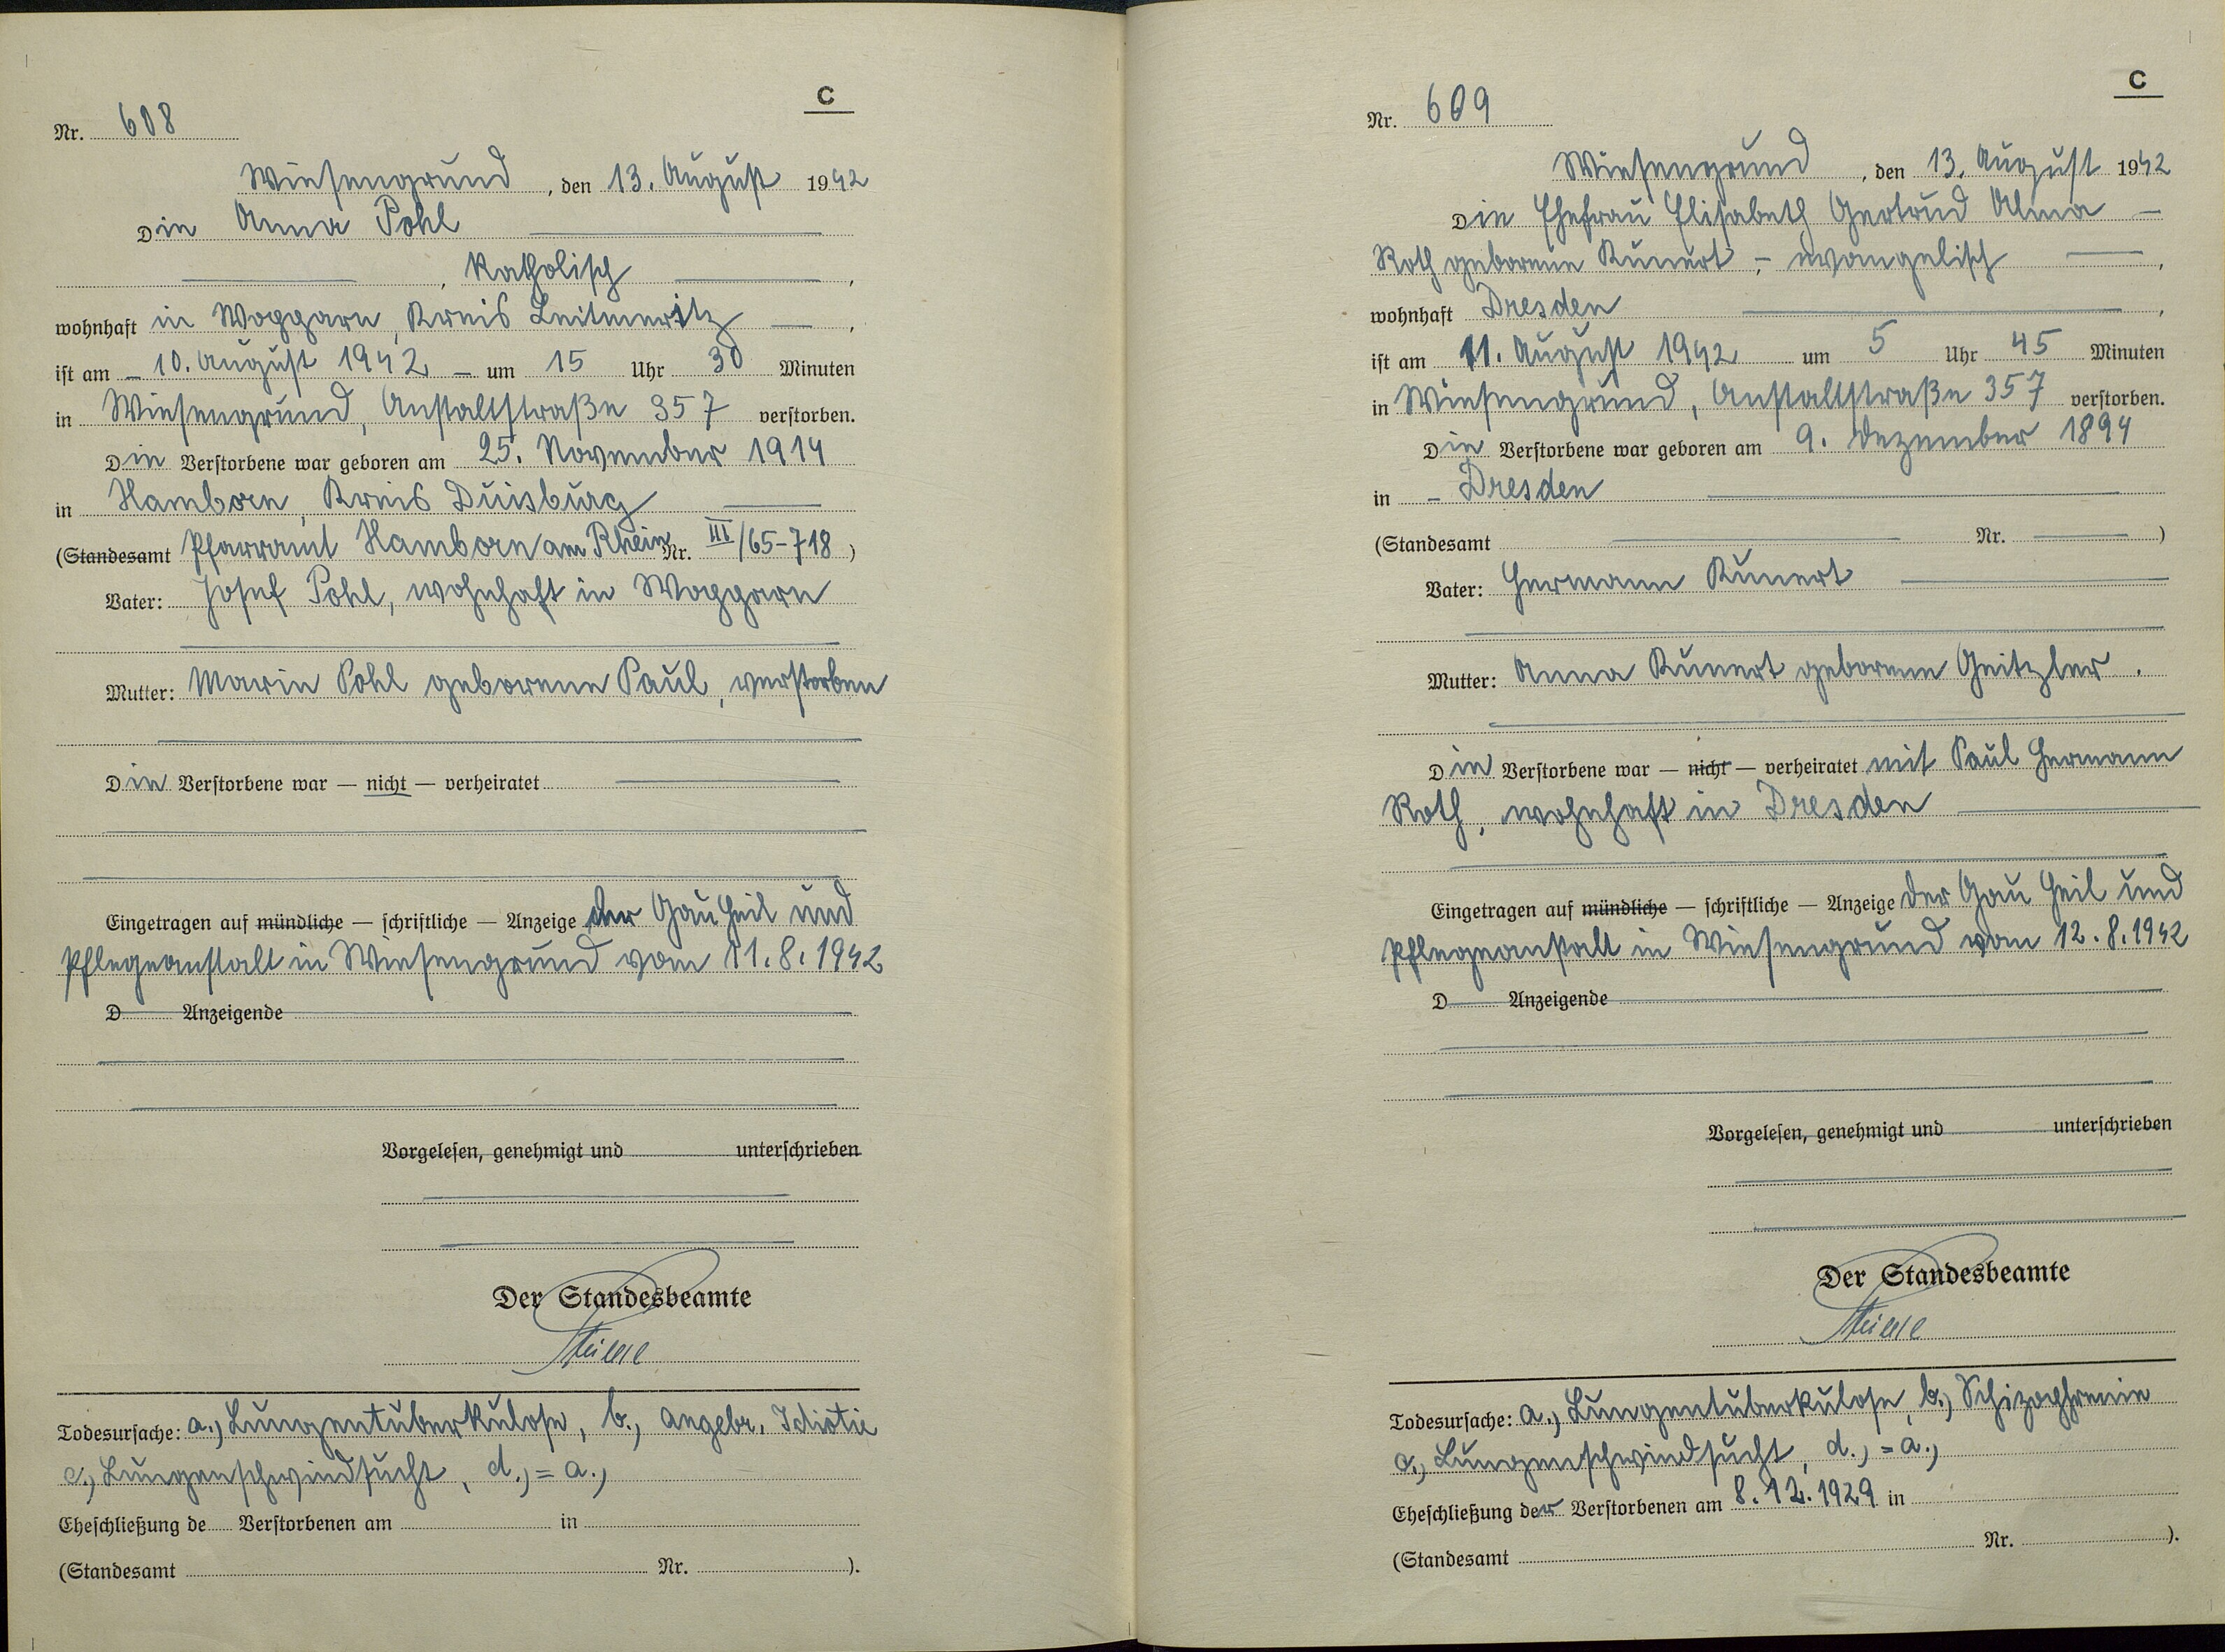 C
Nr. 608
Wiesengrund, den 13. August 1942
Die Anna Pohl
, katholisch,
wohnhaft in Woggarn, Kreis Leitmeritz,
ist am 10. August 1942 um 15 Uhr 30 Minuten
in Wiesengrund, Anstaltstraße 357 verstorben.
Die Verstorbene war geboren am 25. November 1914
in Hamborn, Kreis Duisburg
(Standesamt Pfarramt Hamborn am Rhein Nr. III/65-718)
Vater: Josef Pohl, wohnhaft in Woggarn
Mutter: Marie Pohl geborene Paul, verstorben
Die Verstorbene war — nicht — verheiratet
Eingetragen auf mündliche — schriftliche — Anzeige der Gau Heil und
Pflegeanstalt in Wiesengrund vom 11.8.1942
D Anzeigende
Vorgelesen, genehmigt und unterschrieben
Der Standesbeamte
Todesursache: a.) Lungentuberkulose, b.) angebr. Idiotie
c.) Lungenschwindsucht, d.) = a.)
Eheschließung de Verstorbenen am in
(Standesamt Nr. ).
C
Nr. 609
Wiesengrund, den 13. August 1942
Die Ehefrau Elisabeth Gertrud Alma
Roth geborene Kunert, - evangelisch,
wohnhaft Dresden,
ist am 11. August 1942 um 5 Uhr 45 Minuten
in Wiesengrund, Anstaltstraße 357 verstorben.
Die Verstorbene war geboren am 9. Dezember 1894
in - Dresden
(Standesamt Nr. )
Vater: Hermann Kunert
Mutter: Anna Kunert geborene Geitzler.
Die Verstorbene war — nicht — verheiratet mit Paul Hermann
Roth, wohnhaft in Dresden
Eingetragen auf mündliche — schriftliche — Anzeige der Gau Heil und
Pflegeanstalt in Wiesengrund vom 12.8.1942
D Anzeigende
Vorgelesen, genehmigt und unterschrieben
Der Standesbeamte
Todesursache: a.) Lungentuberkulose, b.) Schizophrenie
c.) Lungenschwindsucht, d.) = a.)
Eheschließung der Verstorbenen am 8.12.1929 in
(Standesamt Nr. ).